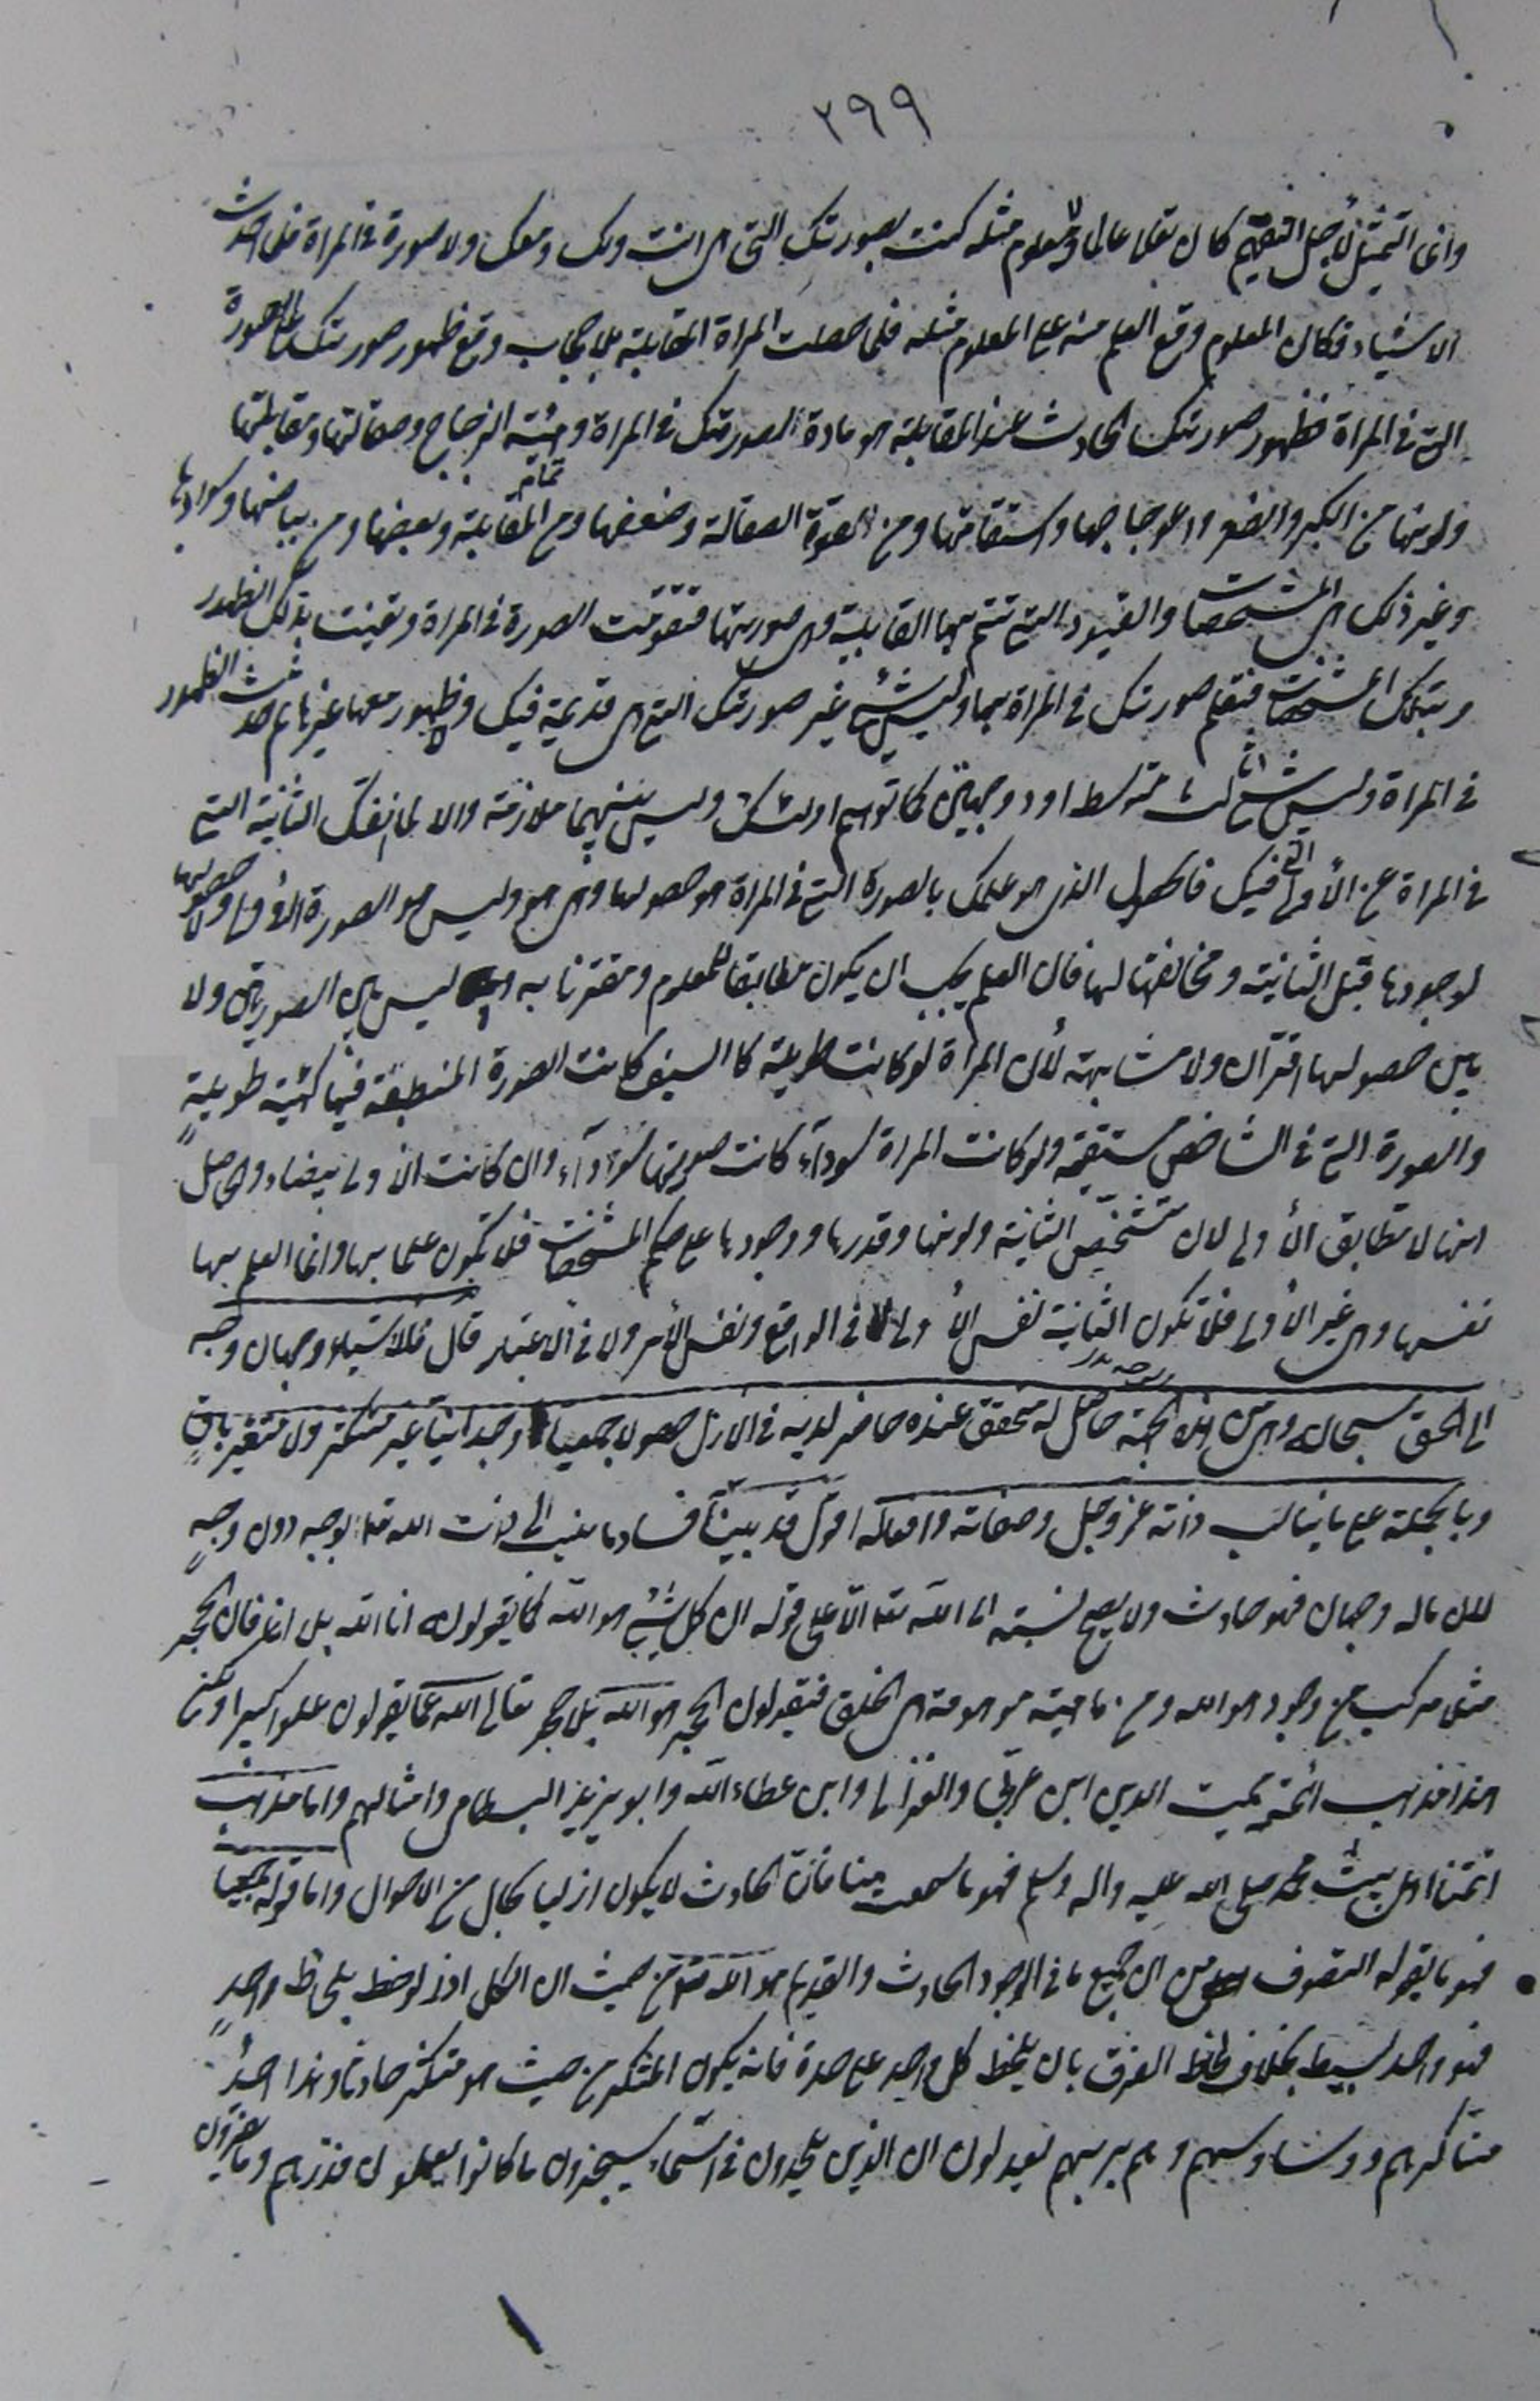 ٢٩٩
وانما التمثيل لأجل التفهيم كان تعالى عالما ولا معلوم مثله كنت بصورتك التي هي انت ولك ومعك ولا صورة في المرآة فلما احدث
الاشياء وكان المعلوم وقع العلم منه على المعلوم مثله فلما حصلت المرآة المقابلة بلا حجاب وقع ظهور صورتك على الصورة
التي في المرآة فظهور صورتك الحادث عند المقابلة هو مادة الصورتك في المرآة وهيئة الزجاج وصقالتها ومقابلتها
ولونها من الكبر والصغر والاعوجاجها واستقامتها ومن القوة الصقالة وضعفها ومن تمام المقابلة وبعضها ومن بياضها وسوادها
وغير ذلك هي المشخصات والقيود التي تتم بها القابلية وهي صورتها فتقومت الصورة في المرآة وتعينت بذلك الظهور
وبتلك المشخصات فتعلم صورتك في المرآة بها وليس شيء غير صورتك التي هي قديمة فيك وظهور معها غيرها ثم حدث الظهور
في المرآة وليس شيء ثالث متوسط او ذو وجهين كما توهم اولئك وليس بينهما ملازمة والا لما انفك الثانية التي
في المرآة عن الأولى التي فيك فالحصول الذي هو علمك بالصورة التي في المرآة هو حصولها وهي هو وليس هو الصورة الأولى ولا حصولها
لوجودها قبل الثانية ومخالفتها لها فان العلم يجب ان يكون مطابقا للمعلوم ومقترنا به وليس بين الصورتين ولا
بين حصولها اقتران ولا مشابهة لأن المرآة لو كانت طويلة كالسيف كانت الصورة المنطبعة فيها كهيئة طويلةٍ
والصورة التي في الشاخص مستقيمة ولو كانت المرآة سوداء كانت صورتها سوداء وان كانت الأولى بيضاء والحاصل
انها لا تطابق الأولى لان تشخص الثانية ولونها وقدرها ووجودها على حكم المشخصات فلا تكون علما بها وانما العلم بها
نفسها وهي غير الأولى فلا تكون الثانية نفس الأولى لا في الواقع ونفس الأمر ولا في الاعتبار قال فللاشياء وجهان وجه
الى الحق سبحانه وهي من هذه الجهة حاصل له متحقق عنده حاضر لديه في الازل حصولا جمعيا وحدانيا غير متكثر ولا متغير باقٍ
وبالجملة على ما يناسب ذاته عز وجل وصفاته وافعاله اقول قد بينا فساد ما ينسب الى ذات الله تعالى بوجه دون وجهٍ
لان ما له وجهان فهو حادث ولا يصح نسبته الى الله تعالى الا على قوله ان كل شيء هو الله كما يقولون انا الله بل انا فان الحجر
مثلا مركب من وجود هو الله ومن ماهية موهومة هي الخلق فيقولون الحجر هو الله بل حجر تعالى الله عما يقولون علوا كبيرا ولكن
هذا مذهب ائمته مميت الدين ابن عربي والغزالي وابن عطاء الله وابو يزيد البسطامي وامثالهم واما مذهب
ائمتنا اهل بيت محمد صلى الله عليه واله وسلم فهو ما سمعت منا فان الحادث لا يكون ازليا بحال من الاحوال واما قوله جمعيا
فهو ما يقوله التصوف من ان جميع ما في الوجود الحادث والقديم هو الله من حيث ان الكل اذا لوحظ بلحاظ واحدٍ
فهو واحد بسيط بخلاف لحاظ الفرق بان يلحظ كل واحد على حدة فانه يكون المتكثر من حيث هو متكثر حادثا وهذا احدُ
مناكرهم ووساوسهم وهم بربهم يعدلون ان الذين يلحدون في اسمائه سيجزون ما كانوا يعملون فذرهم وما يفترون